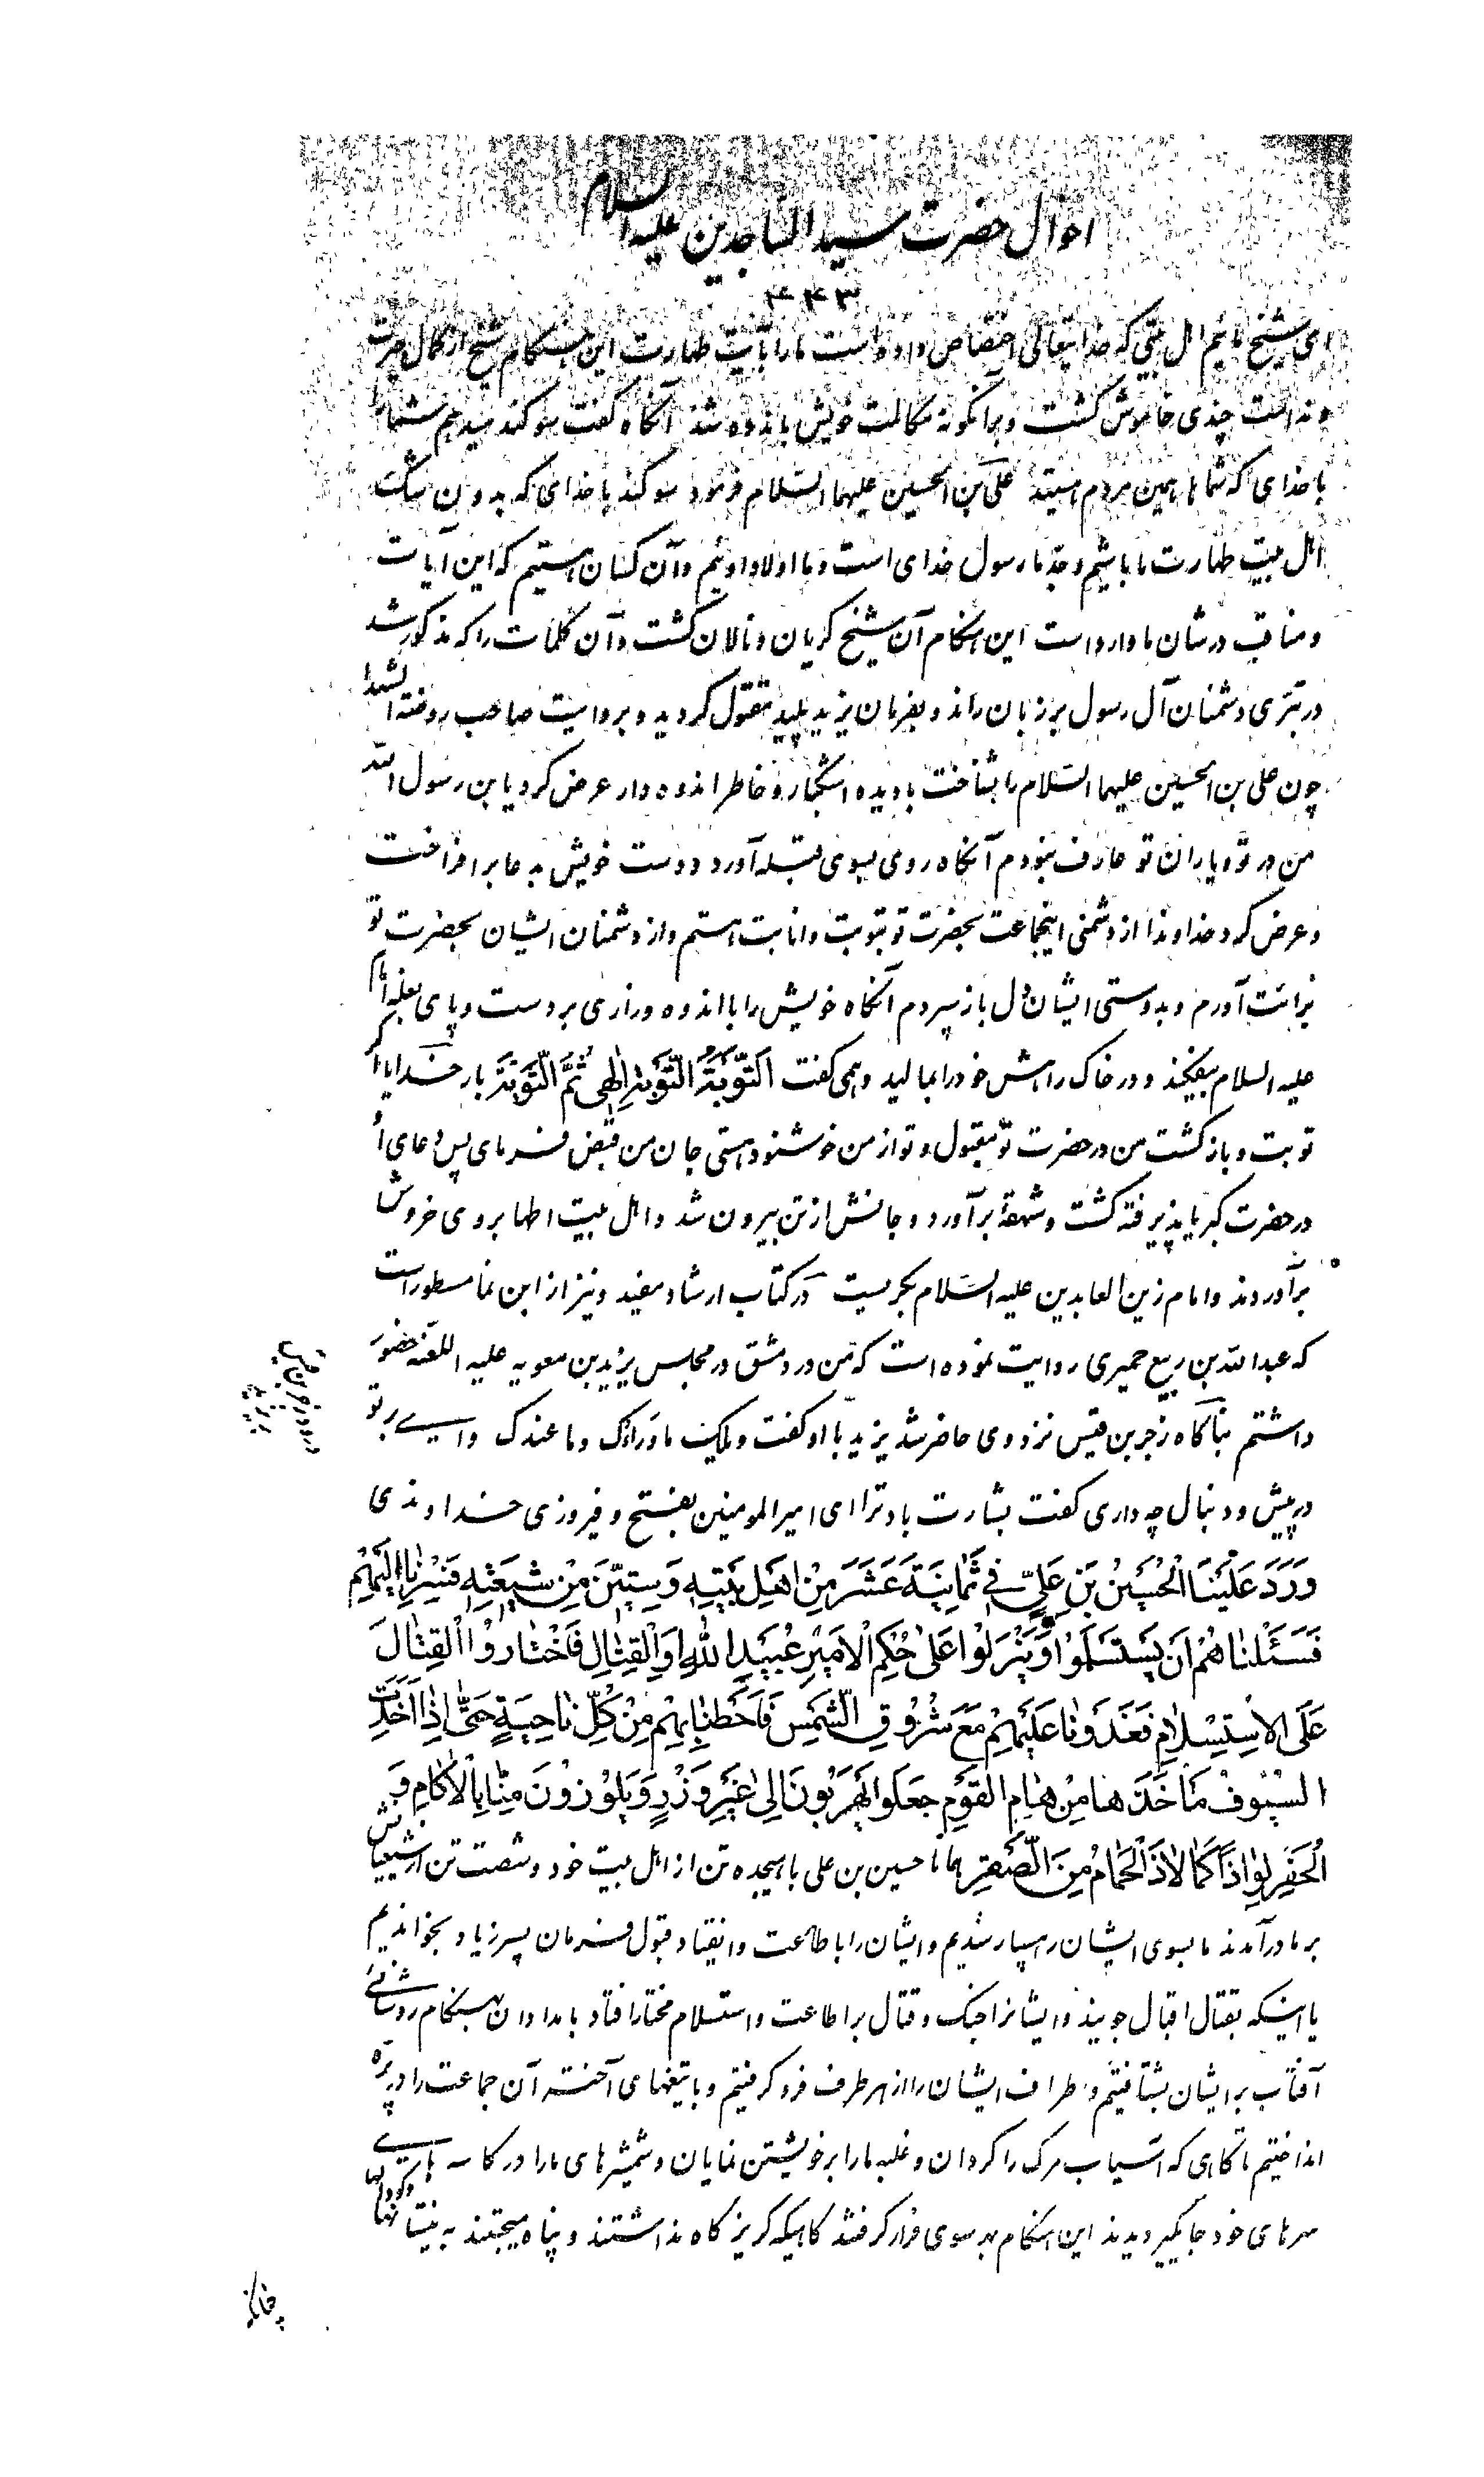 احوال حضرت سید الساجدین علیه السلام
۴۴۳
ای شیخ مائیم اهل بیتی که خدایتعالی اختصاص داده است ما را بآیت طهارت این هنگام شیخ از کمال حیرت
و ندامت چندی خاموش گشت و بر آنگونه مکالمت خویش باندوه شد آنگاه گفت سوگند میدهم شما را
با خدای که شما همین مردم هستید علی بن الحسین علیهما السلام فرمود سوگند با خدای که بدون شک
اهل بیت طهارت ما باشیم و جد ما رسول خدای است و ما اولاد اوئیم و آن کسان هستیم که این آیات
و مناقب در شان ما وارد است این هنگام آن شیخ گریان و نالان گشت و آن کلمات را که مذکور شد
در تبری دشمنان آل رسول بر زبان راند و بفرمان یزید پلید مقتول گردید و بروایت صاحب روضة الشهدا
چون علی بن الحسین علیهما السلام را بشناخت با دیده اشکبار و خاطر اندوه دار عرض کرد یا بن رسول الله
من در تو و یاران تو عارف نبودم آنگاه روی بسوی قبله آورد و دست خویش بدعا بر افراخت
و عرض کرد خداوندا از دشمنی اینجماعت بحضرت تو بتوبت و انابت هستم و از دشمنان ایشان بحضرت تو
برائت آورم و بدوستی ایشان دل باز سپردم آنگاه خویش را با اندوه و زاری بر دست و پای امام
علیه السلام بیفکند و در خاک راهش خود را بمالید و همی گفت اَلتَّوْبَةَ اَلتَّوْبَةَ اِلٰهی ثُمَّ التَّوْبَةَ بار خدایا اگر
توبت و بازگشت من در حضرت تو مقبول و تو از من خوشنود هستی جان من قبض فرمای پس دعای او
در حضرت کبریا پذیرفته گشت و شهقهٔ برآورد و جانش از تن بیرون شد و اهل بیت اطهار بر وی خروش
برآوردند و امام زین العابدین علیه السلام بگریست در کتاب ارشاد مفید و نیز از ابن نما مسطور است
که عبدالله بن ربیع حمیری روایت نموده است که من در دمشق در مجلس یزید بن معویه علیه اللعنه حضور
داشتم بناگاه زجر بن قیس نزد وی حاضر شد یزید با او گفت ویلک ما وراءک و ما عندک وای بر تو
در پیش و دنبال چه داری گفت بشارت باد ترا ای امیر المومنین بفتح و فیروزی خداوندی
وَرَدَ عَلَیْنَا الْحُسَیْنُ بْنُ عَلِیٍّ فِی ثَمَانِیَةَ عَشَرَ مِنْ اَهْلِ بَیْتِهِ وَسِتِّینَ مِنْ شِیعَتِهِ فَسِرْنَا اِلَیْهِمْ
فَسَئَلْنَاهُمْ اَنْ یَسْتَسْلِمُوا وَیَنْزِلُوا عَلٰی حُکْمِ الْاَمِیرِ عُبَیْدِ اللهِ اَوِ الْقِتَالِ فَاخْتَارُوا الْقِتَالَ
عَلَی الْاِسْتِسْلَامِ فَغَدَوْنَا عَلَیْهِمْ مَعَ شُرُوقِ الشَّمْسِ فَاَحَطْنَا بِهِمْ مِنْ کُلِّ نَاحِیَةٍ حَتّٰی اِذَا اَخَذَتِ
السُّیُوفُ مَاْخَذَهَا مِنْ هَامِ الْقَوْمِ جَعَلُوا یَهْرَبُونَ اِلٰی غَیْرِ وَزَرٍ وَیَلُوذُونَ مِنَّا بِالْاٰکَامِ وَ
الْحُفَرِ لِوَاذًا کَمَا لَاذَ الْحَمَامُ مِنَ الصَّقْرِ همانا حسین بن علی با هیجده تن از اهل بیت خود و شصت تن از شیعیانش
بر ما درآمدند ما بسوی ایشان رهسپار شدیم و ایشان را باطاعت و انقیاد و قبول فرمان پسر زیاد بخواندیم
یا اینکه بقتال اقبال جویند و ایشانرا جنگ و قتال بر اطاعت و استسلام مختار افتاد بامدادان بهنگام روشنائی
آفتاب بر ایشان بشتافتیم و اطراف ایشان را از هر طرف فرو گرفتیم و با تیغهای آخته آن جماعت را در پره
انداختیم تا گاهی که آسیاب مرگ را گردان و غلبه ما را بر خویشتن نمایان و شمشیرهای ما را در کاسه
سرهای خود جایگیر دیدند این هنگام بهر سوی فرار گرفتند گاهیکه گریزگاه نداشتند و پناه میجستند به پشتها و گودالها
ورود زجر بن قیس
بر یزید
چنانکه